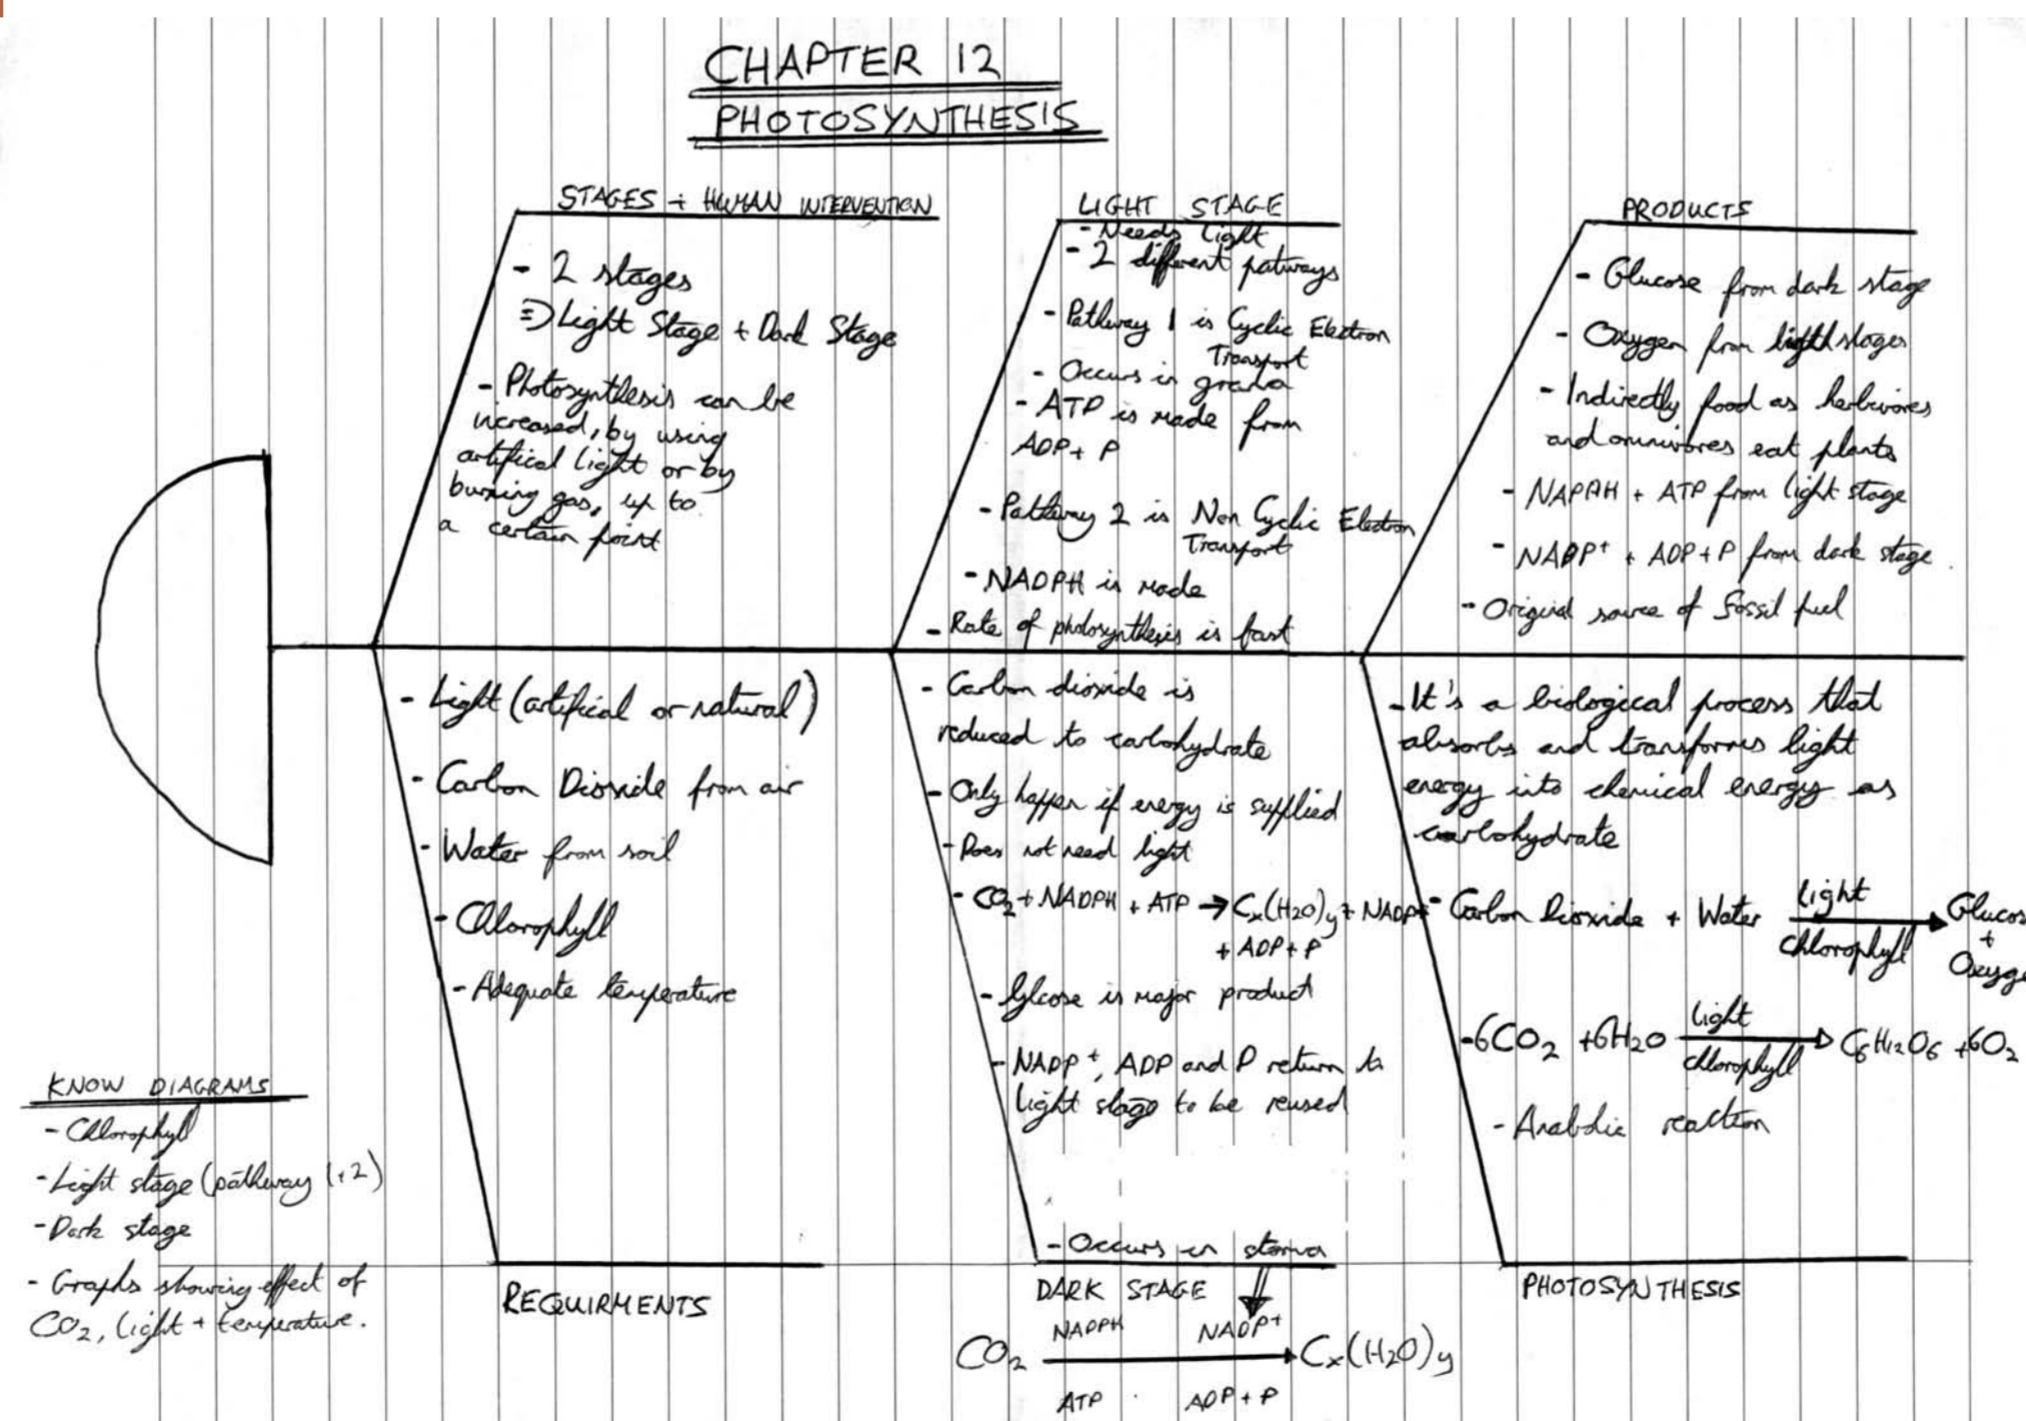 CHAPTER 12
PHOTOSYNTHESIS
STAGES + HUMAN INTERVENTION
- 2 stages
=> Light Stage + Dark Stage
- Photosynthesis can be
increased, by using
artifical light or by
burning gas, up to
a certain point
LIGHT STAGE
- Needs Light
- 2 different patways
- Pathway 1 is Cyclic Electron
Transport
- Occurs in grana
- ATP is made from
ADP + P
- Pathway 2 is Non Cyclic Electron
Transport
- NADPH is made
- Rate of photosynthesis is fast
PRODUCTS
- Glucose from dark stage
- Oxygen from ligth stages
- Indirectly food as herbivores
and omnivores eat plants
- NAPAH + ATP from light stage
- NADP+ + ADP + P from dark stage.
- Original source of fossil fuel
- Light (artifical or natural)
- Carbon Dioxide from air
- Water from soil
- Chlorophyll
- Adequate temperature
REQUIRMENTS
- Carbon dioxide is
reduced to carbohydrate
- Only happen if energy is supplied
- Does not need light
- CO2 + NADPH + ATP → Cx(H2O)y + NADP+
+ ADP + P
- Glcose is major product
- NADP+, ADP and P return to
light stage to be reused
- Occurs in stroma
DARK STAGE
NADPH NADP+
CO2 → Cx(H2O)y
ATP ADP + P
- It's a biological process that
absorbs and transforms light
energy into chemical energy as
carbohydrate
light
- Carbon Dioxide + Water → Glucos
chlorophyll +
Oxyge
light
- 6CO2 + 6H2O → C6H12O6 + 6O2
chlorophyll
- Anabolic reaction
PHOTOSYNTHESIS
KNOW DIAGRAMS
- Chlorophyll
- Light stage (pathway 1+2)
- Dark stage
- Graphs showing effect of
CO2, light + temperature.